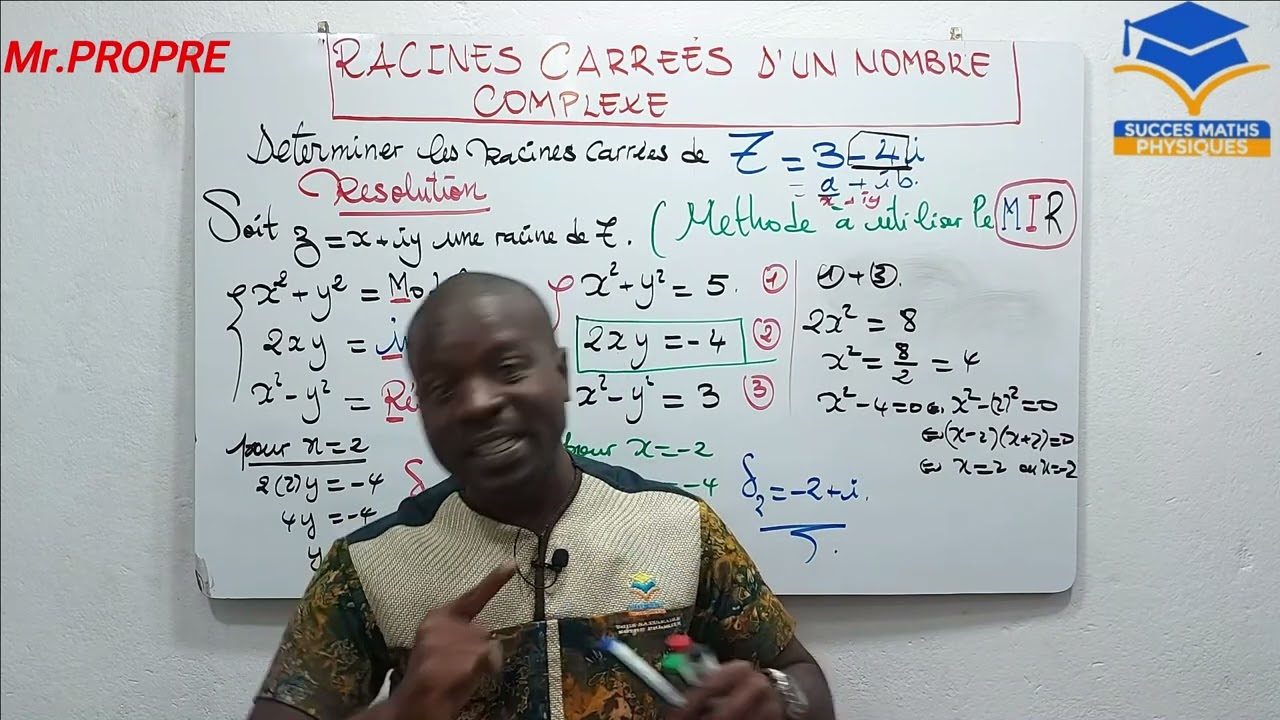 Mr.PROPRE
RACINES CARREÉS D'UN NOMBRE
COMPLEXE
SUCCES MATHS
PHYSIQUES
Determiner les Racines Carrées de Z = 3 - 4i
= a + ib.
x + iy
Resolution
Soit z = x + iy une racine de Z. (Methode à utiliser le MIR
x² + y² = Mod
2xy = i
x² - y² = Ré
x² + y² = 5. ①
2xy = -4 ②
x² - y² = 3 ③
① + ③.
2x² = 8
x² = 8/2 = 4
x² - 4 = 0 ⇔ x² - (2)² = 0
⇔ (x-2)(x+2) = 0
⇔ x = 2 ou x = -2
pour x = 2
2(2)y = -4
4y = -4
y
δ
pour x = -2
= -4
δ₂ = -2 + i.